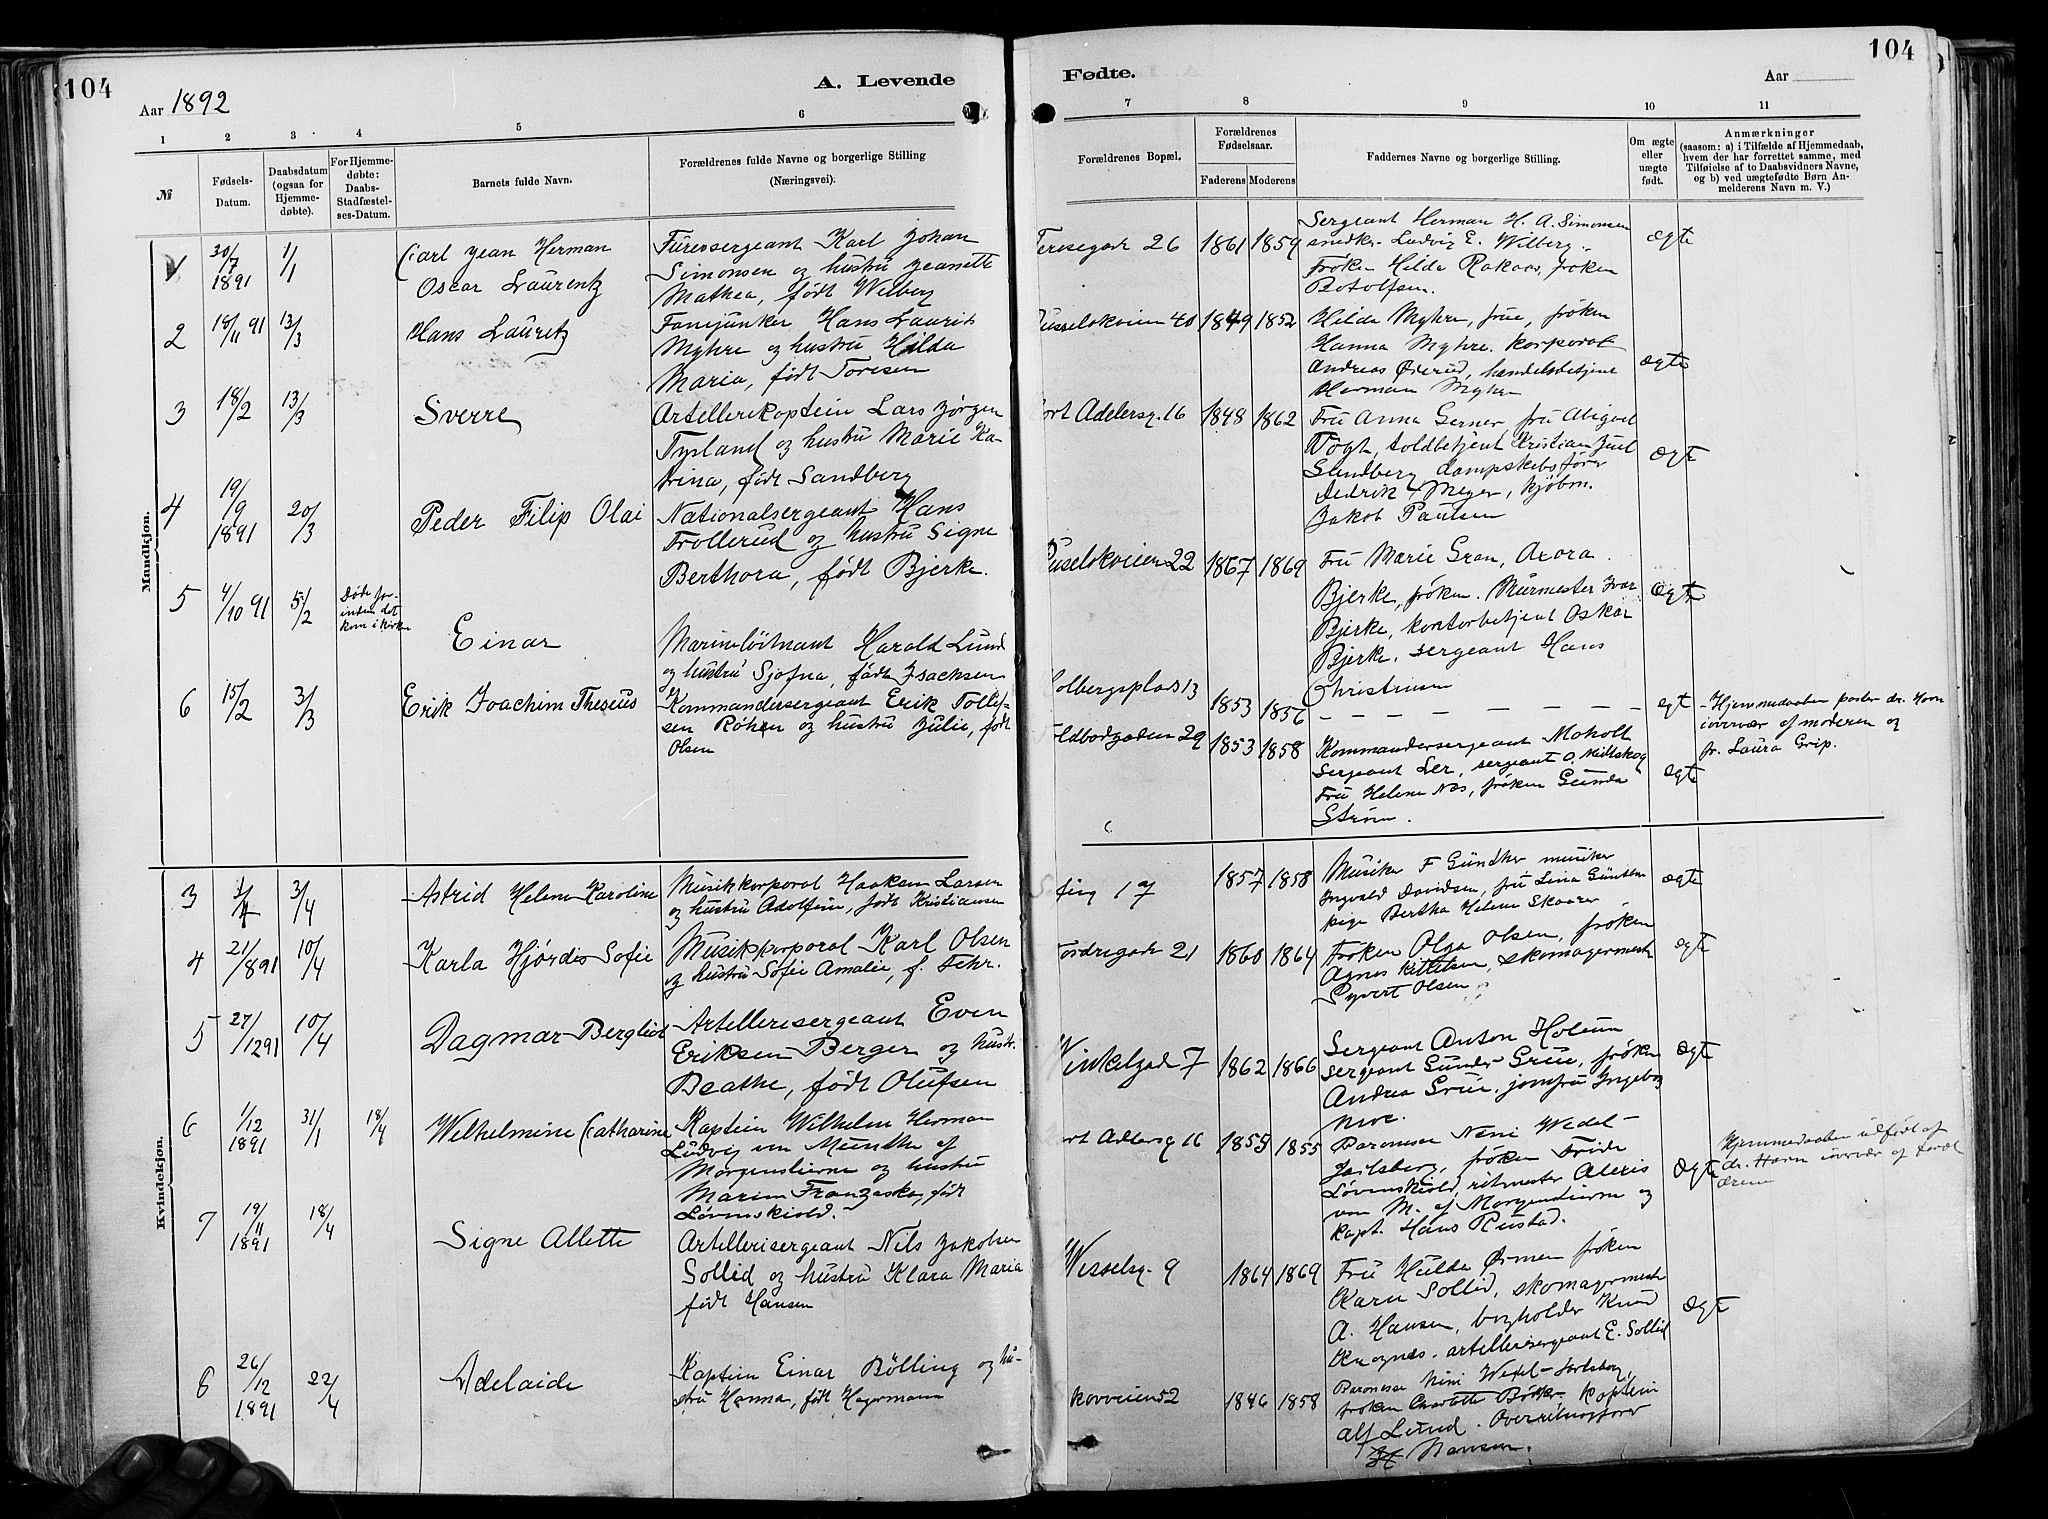 104
A. Levende
Aar 1892
1 2 3 4 5 6
№
Fødsels-
Datum.
Daabsdatum
(ogsaa for
Hjemme-
døbte).
For Hjemme-
døbte:
Daabs-
Stadfæstel-
ses-Datum.
Barnets fulde Navn.
Forældrenes fulde Navne og borgerlige Stilling
(Næringsvei).
Mandkjøn.
1 30/7 1891 1/1
Carl Jean Herman
Oscar Laurentz
Furersergeant Karl Johan
Simonsen og hustru Jeanette
Mathea, født Wilberg
2 18/11 91 13/3
Hans Lauritz
Fanejunker Hans Laurits
Myhre og hustru Hilda
Maria, født Toresen
3 18/2 13/3
Sverre
Artellerikaptein Lars Jørgen
Tysland og hustru Marie Ka-
trina, født Sandberg
4 19/9 1891 20/3
Peder Filip Olai
Nationalsergeant Hans
Trollerud og hustru Signe
Berthora, født Bjerke.
5 4/10 91 5/2
Døde for-
inden det
kom i kirken
Einar
Marineløitnant Harald Lund
og hustru Sjofna, født Isachsen
6 15/2 3/3
Erik Joachim Theseus
Kommandersergeant Erik Tollef-
sen Røhen og hustru Julie, født
Olsen
Kvindekjøn.
3 1/4 3/4
Astrid Helene Karoline
Musikkorporal Haaken Larsen
og hustru Adolfine, født Kristiansen
4 21/8 91 10/4
Karla Hjørdis Sofie
Musikkorporal Karl Olsen
og hustru Sofie Amalie, f. Fehr.
5 27/12 91 10/4
Dagmar Bergliot
Artellerisergeant Even
Eriksen Berger og hustr.
Beathe, født Olufsen
6 1/12 1891 31/1 18/4
Wilhelmine Catharine
Kaptein Wilhelm Herman
Ludvig von Munthe af
Morgenstierne og hustru
Maren Franzeska, født
Løvenskiold.
7 19/11 1891 18/4
Signe Allette
Artellerisergeant Nils Jakobsen
Sollid og hustru Klara Maria
født Hansen
8 26/12 1891 22/4
Adelaide
Kaptein Einar Bølling og hu-
stru Hanna, født Hagemann
104
Fødte.
Aar
7 8 9 10 11
Forældrenes Bopæl.
Forældrenes
Fødselsaar.
Faderens Moderens
Faddernes Navne og borgerlige Stilling.
Om ægte
eller
uægte
født.
Anmærkninger
(saasom: a) i Tilfælde af Hjemmedaab,
hvem der har forrettet samme, med
Tilføielse af to Daabsvidners Navne,
og b) ved uægtefødte Børn An-
melderens Navn m. V.)
Teresegade 26 1861 1859
Sergeant Herman H. A. Simonsen
snedker Ludvig E. Wilberg.
Frøken Hilda Rakaas, frøken
Botolfsen.
ægte
40 1849 1852
Hilda Myhre, frue, frøken
Hanna Myhre. korporal
Andreas Øverud, handelsbetjent
Herman Myhre
ægte
ort Adelersg. 16 1848 1862
Fru Anna Gerner, fru Abigael
Vogt, toldbetjent Kristian Juul
Sandberg dampskibsfører
Dedrik Meyer, kjøbm.
Jakob Paulsen
ægte
22 1867 1869
Fru Marie Gran, Axora
Bjerke, frøken. Murmester Ivar
Bjerke, kontorbetjent Oskar
Bjerke, sergeant Hans
Christensen
ægte
olbergsplads 13 1853 1856
– – – – – – – –
ægt
Hjemmedaaben
overvær af moderen og
fr. Laura Grip.
oldbodgaden 29 1853 1858
Kommandersergeant Moholt
Sergeant Ler, sergeant O. Mittskog
Fru Helene Næs, frøken Gunda
Strøm.
ægte
17 1857 1858
Musiker F Günther musiker
Ingvald Davidsen, fru Lina Günther
pige Bertha Helene Skaarer
ægte
ordregade 21 1860 1864
Frøken Olga Olsen, frøken
Agnes Kittilsen, skomagermester
Syvert Olsen
ægt
Winkelgade 7 1862 1866
Sergeant Anton Holum
Sergeant Gunder Grue, frøken
Andrea Grue, jomfru Ingeborg
Moe.
ægt
ort Adlersg 16 1859 1855
Baronesse Nini Wedel-
Jarlsberg, frøken Frida
Løvenskiold, ritmester Alexis
von M. af Morgenstierne og
kapt. Hans Rustad.
ægte
Hjemmedaaben udført af
dr. Horn
Wesselsg. 9 1864 1869
Fru Hulda Ørmen frøken
Karen Sollid, skomagermester
A. Hansen, bogholder Knud
artellerisergeant E. Sollid
ægte
52 1846 1858
Baronesse Nini Wedel-Jarlsberg,
frøken Charlotte Bødtker kaptein
Alf Lund. Overretssagfører
Hansen.